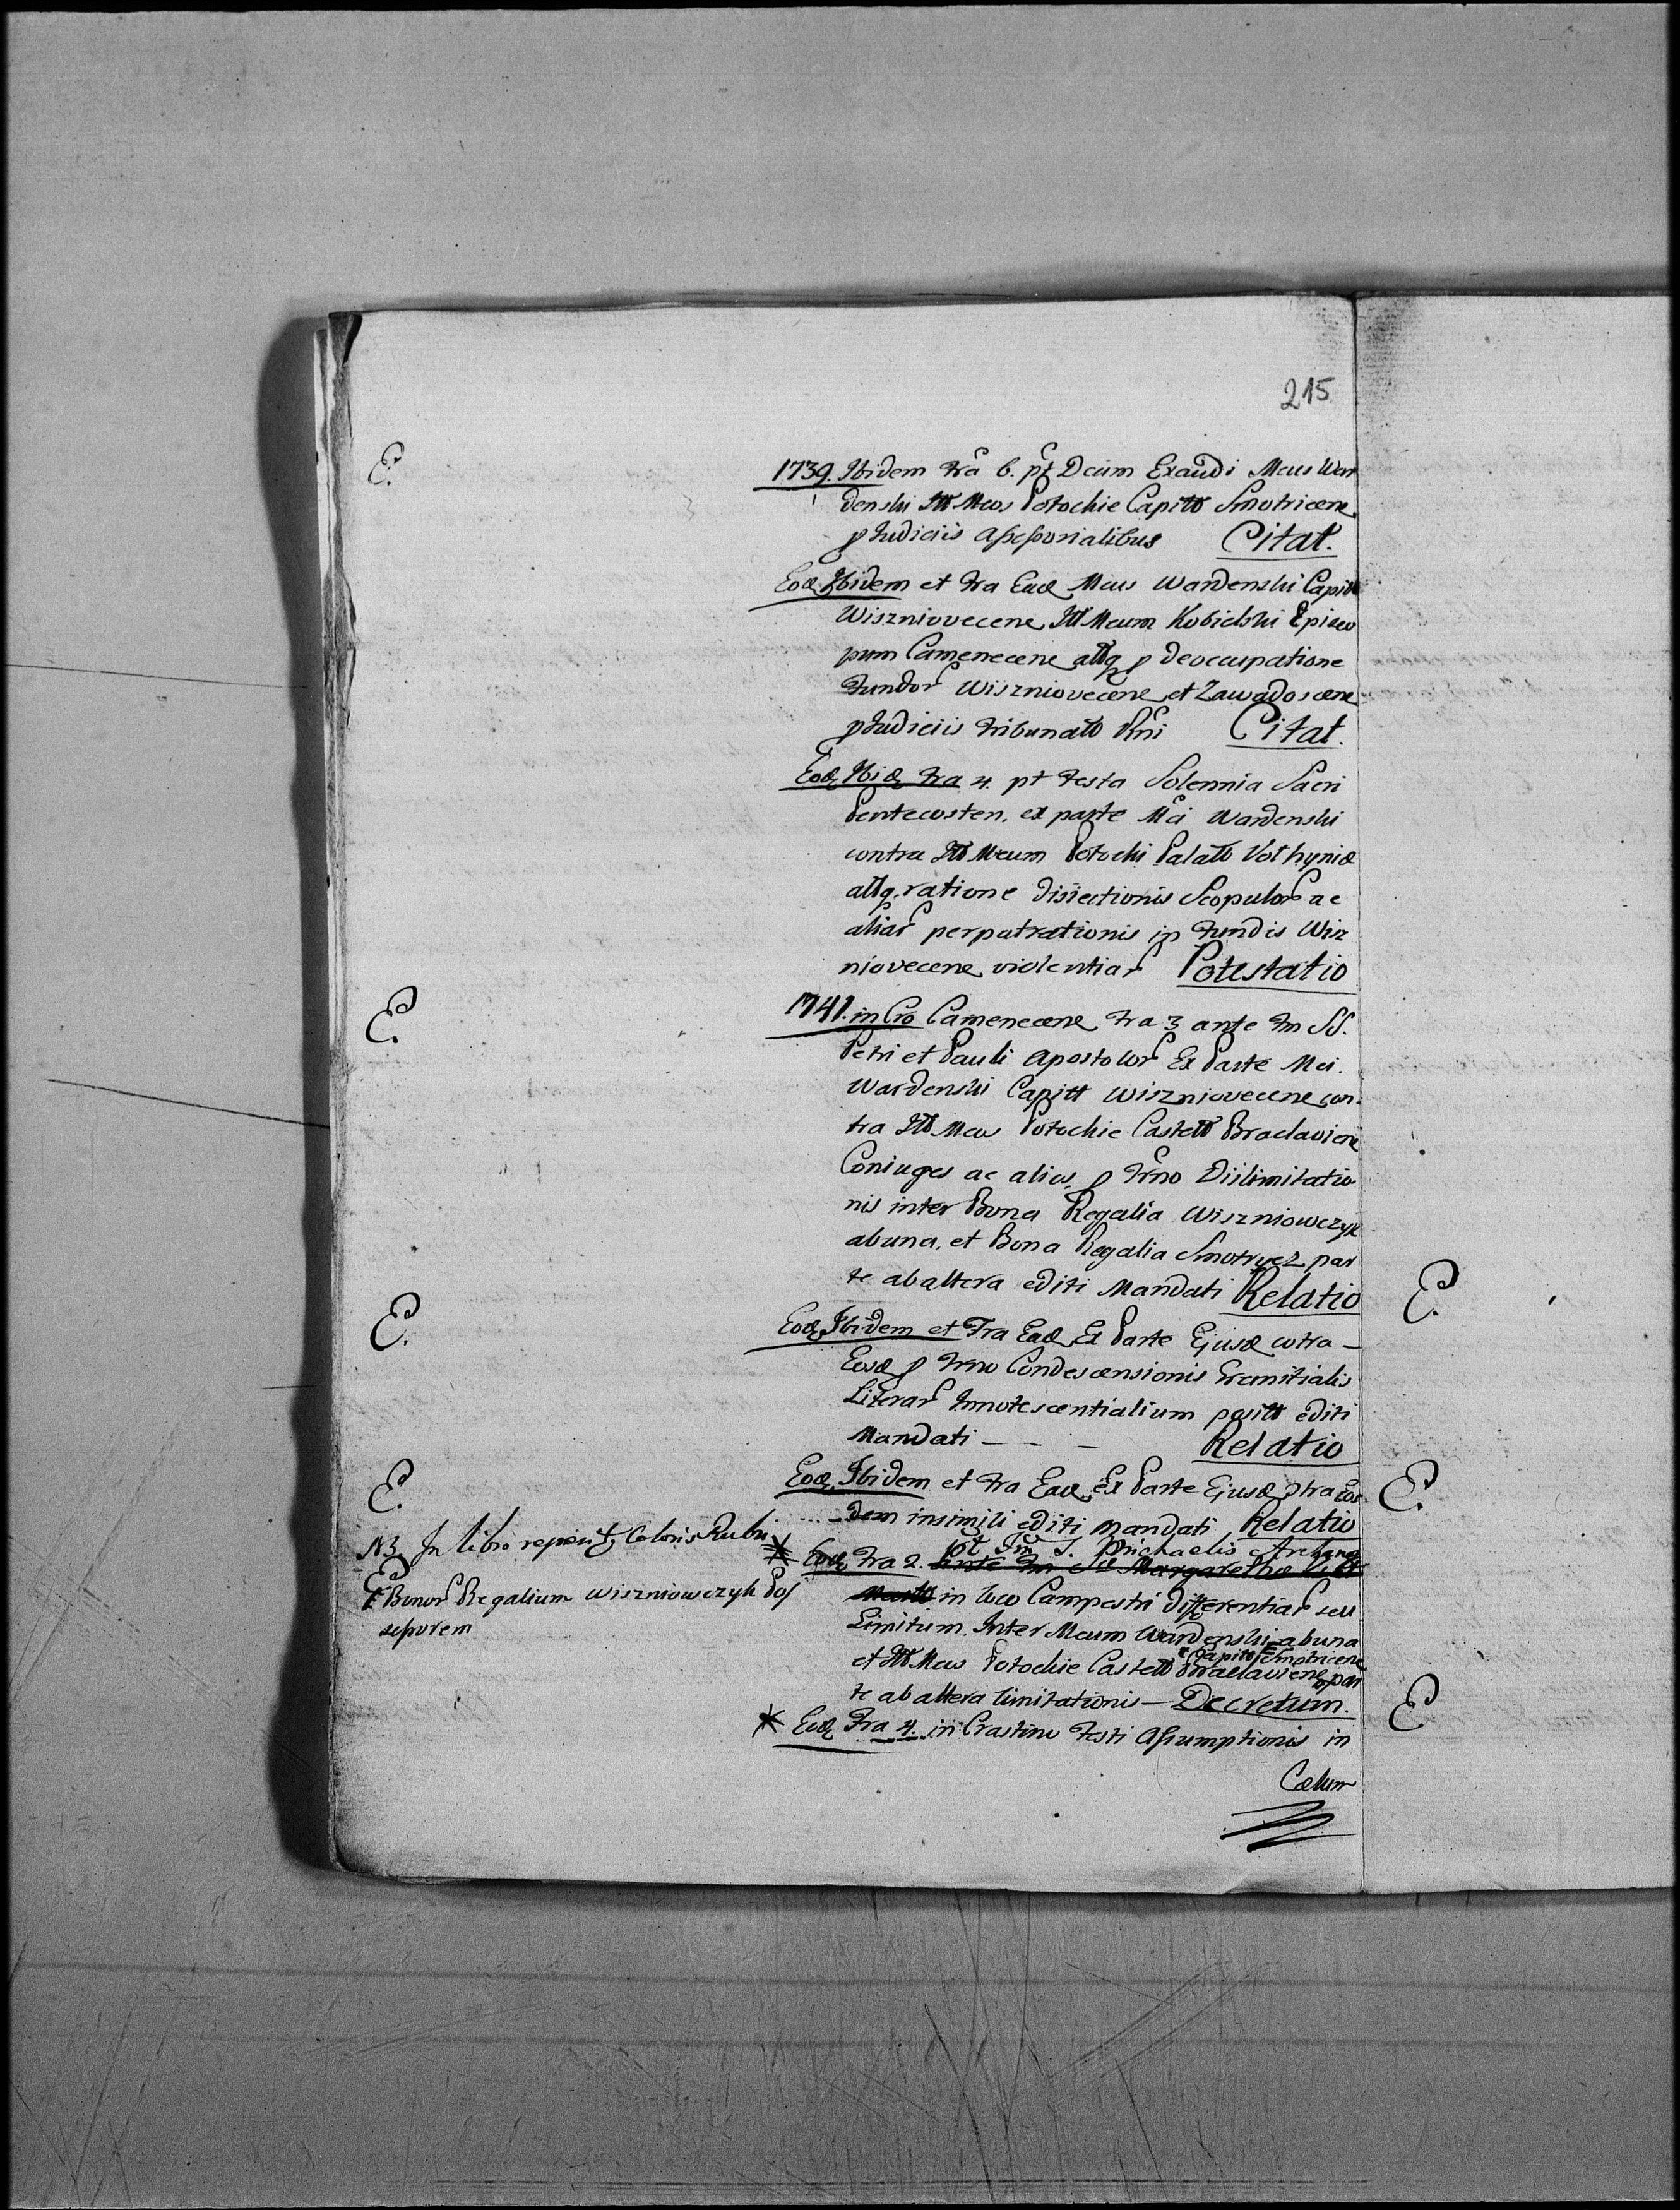 215
E.
1739. Ibidem Fra 6. pt Dcam Exaudi Mcus War
denski Ill Mcos Potockie Capitt Smotricene
p Judiciis Assessorialibus Citat.
Eod Ibidem et Fra Ead Mcus Wardenski Capitt
Wiszniovecene Ill Mcum Kobielski Episco
pum Camenecene attq p deoccupatione
Fundor Wiszniovecene et Zawadoscene
p Judiciis Tribunatt Rni Citat.
Eod Ibid Fra 4. pt Festa Solennia Sacri
Pentecosten. ex parte Mci Wardenski
contra Ill Mcum Potocki Palatt Volhyniæ
attq. ratione disiectionis Scopulor ac
aliar perpatrationis in Fundis Wisz
niovecene violentiar Potestatio
E.
1741. in Cro Camenecene Fra 3 ante Fm SS.
Petri et Pauli Apostolor Ex Parte Mci.
Wardenski Capitt Wiszniovecene con.
tra Ill Mcos Potockie Castell Braclaviene
Coniuges ac alios, p Trno Dislimitatio
nis inter Bona Regalia Wiszniowczyk
ab una, et Bona Regalia Smotrycz par
te ab altera editi Mandati Relatio
E.
E.
Eod Ibidem et Fra Ead Ex Parte Ejusd cotra -
Eosd p Trno Condescensionis Gremitialis
Literar Innotescentialium positt editi
Mandati - - - Relatio
E.
Eod. Ibidem et Fra Ead. Ex Parte Ejusd Ztra Eos
dem insimili editi Mandati Relatio
E.
NB. In libro reperit, Coloris Rubri
Eod Fra 2. pt Fm S. Michaelis Archang
ante Fm Stæ Margarethæ
in loco Campestri differentiar seu
Limitum. Inter Mcum Wardenski ab una
E
Bonor Regalium Wiszniowczyk Pos
sesorem
et Capitt Smotricene
et Ill Mcos Potockie Castell Braclaviene par
te ab altera limitationis - Decretum.
E
* Eod Fra 4. in Crastino Festi Assumptionis in
Cælum